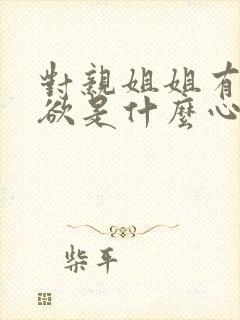 對親姐姐有
欲是什麼心
柴平